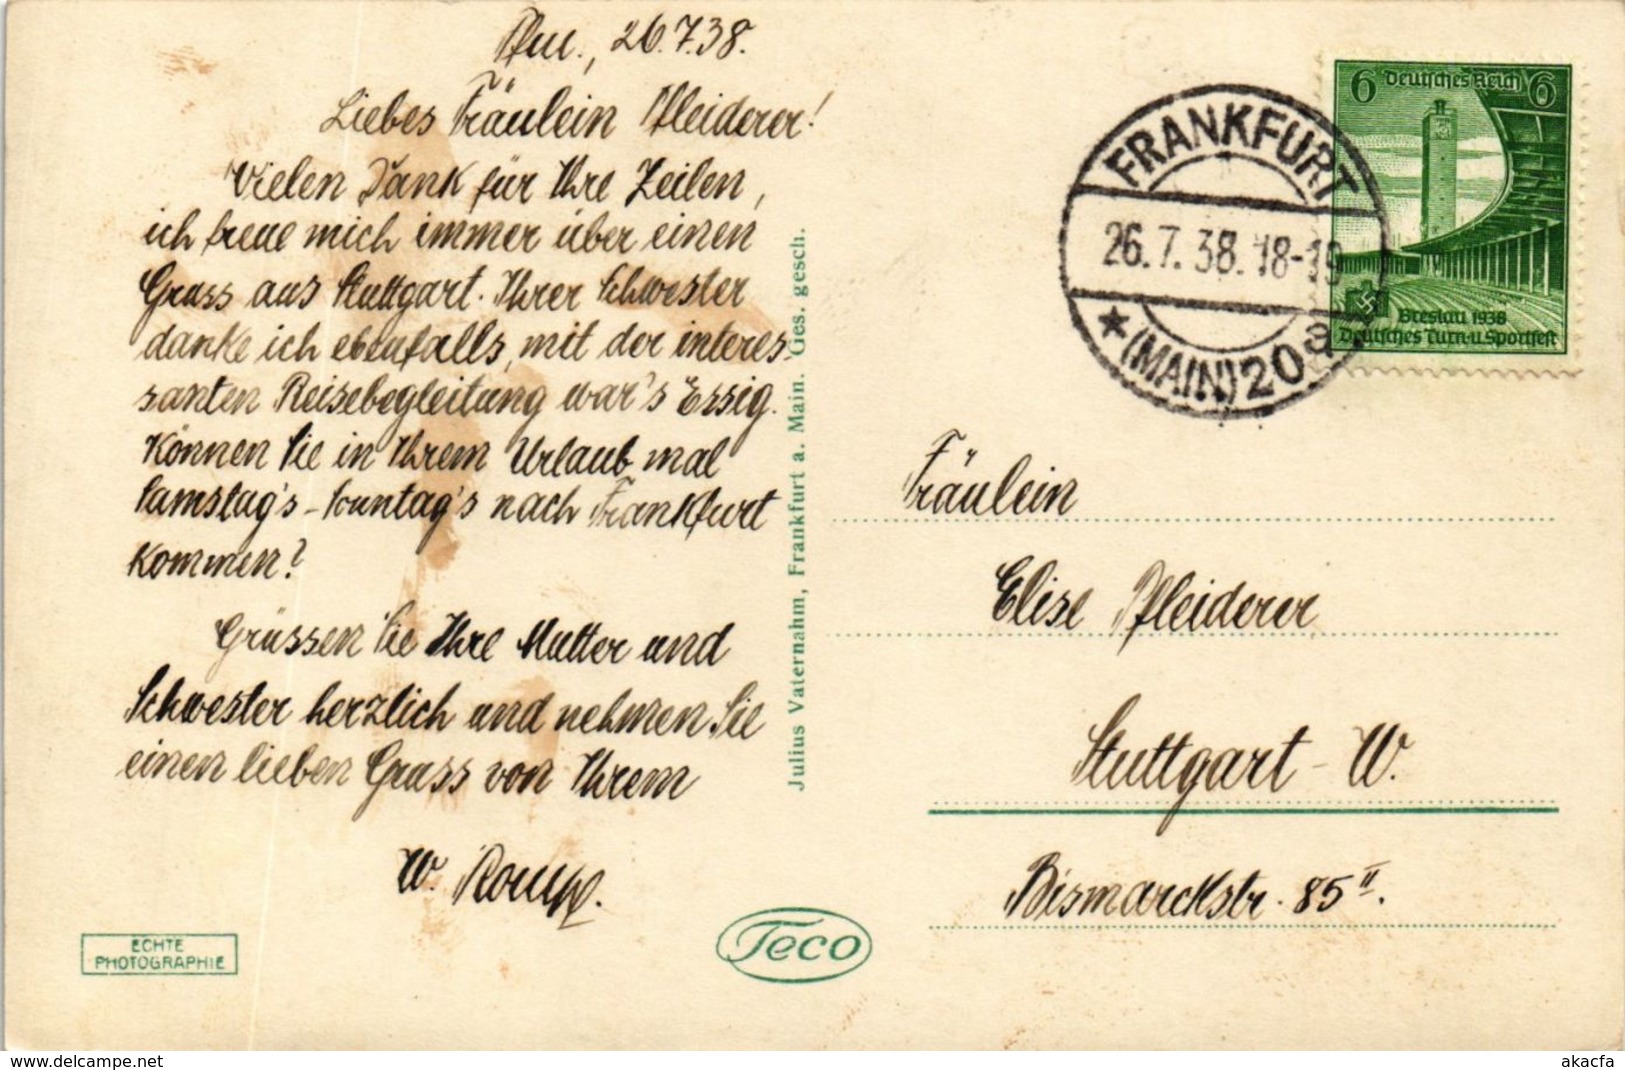 26.7.38.
Liebes Fräulein Pfleiderer!
Vielen Dank für Ihre Zeilen,
ich freue mich immer über einen
Gruss aus Stuttgart. Ihrer Schwester
danke ich ebenfalls, mit der interes-
santen Reisebegleitung war's Essig.
Können Sie in Ihrem Urlaub mal
Samstag's-Sonntag's nach Frankfurt
kommen?
Grüssen Sie Ihre Mutter und
Schwester herzlich und nehmen Sie
einen lieben Gruss von Ihrem
W.
ECHTE
PHOTOGRAPHIE
Julius Vaternahm, Frankfurt a. Main. Ges. gesch.
Teco
FRANKFURT
26.7.38.18-19
(MAIN) 20
6 Deutsches Reich 6
Breslau 1938
Deutsches Turn-u.Sportfest
Fräulein
Elise Pfleiderer
Stuttgart-W.
Bismarckstr. 85 II.
www.delcampe.net
akacfa